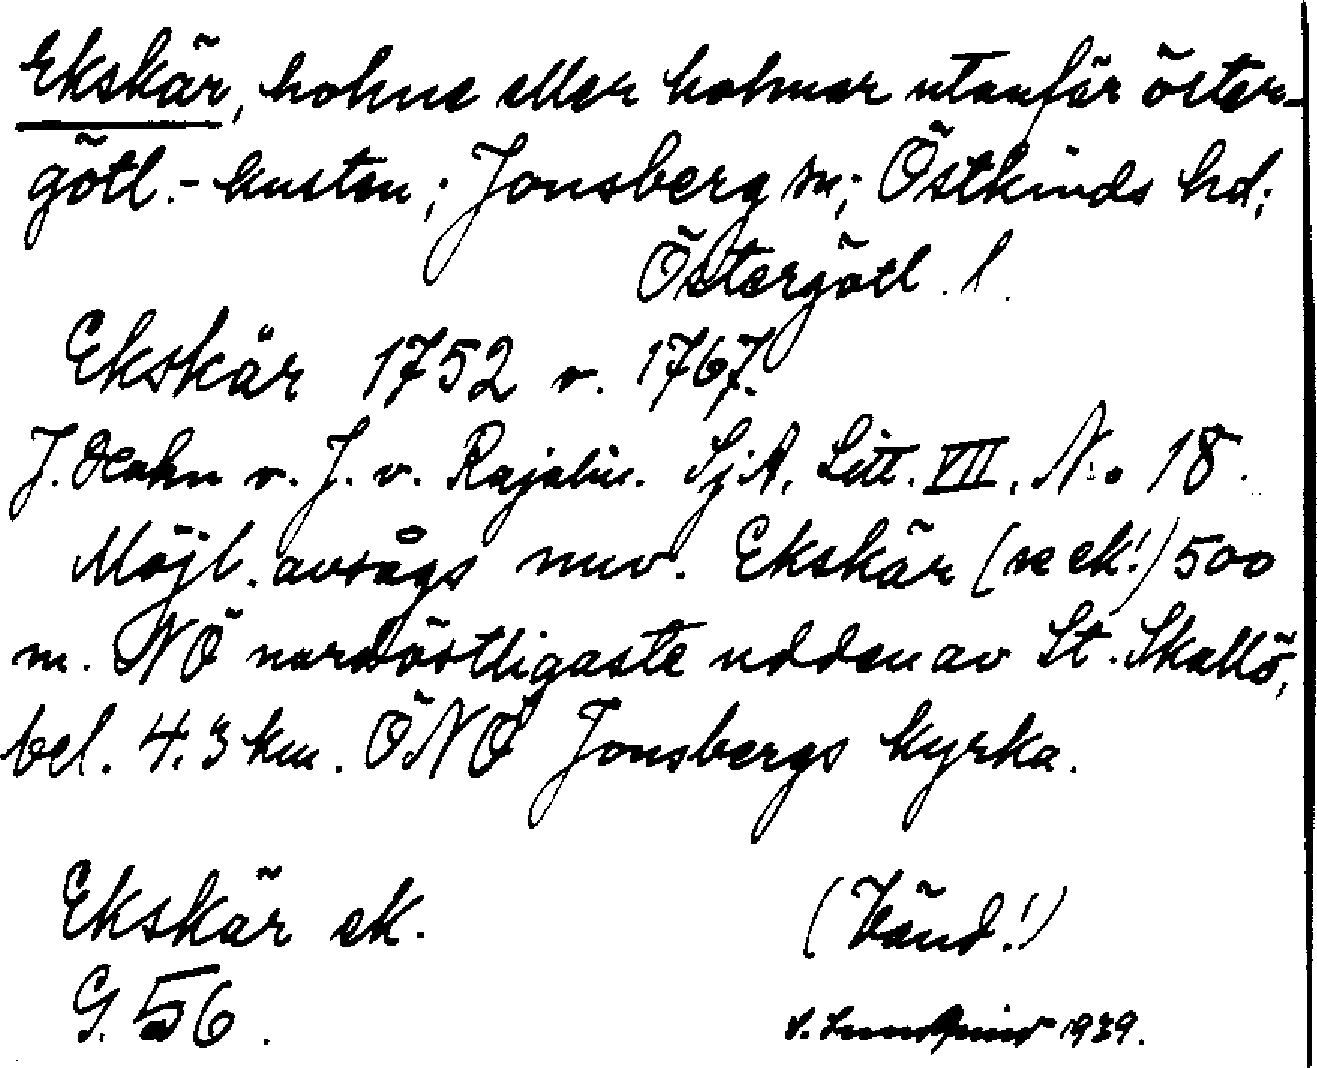 Ekskär, holme eller holmar utanför öster-
götl.-kusten; Jonsberg sn; Östkinds hd;
Östergötl. l.
Ekskär 1752 o. 1767.
J. Hahn o. J. v. Rajalin. SjA, Litt. VII, No 18.
Möjl. avsågs nuv. Ekskär (se ek!) 500
m. NÖ nordöstligaste udden av St. Skallö,
bel. 4.3 km. ÖNÖ Jonsbergs kyrka.
Ekskär ek. (Vänd!)
G. 56. S. Lundqvist 1939.